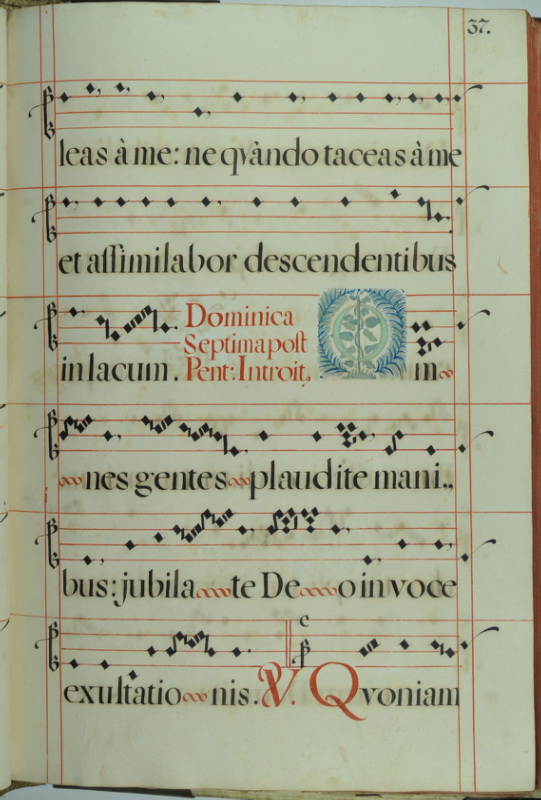 37.
leas à me: ne qvàndo taceas à me
et assimilabor descendentibus
in lacum. Dominica
Septima post
Pent: Introit, Om
nes gentes plaudite mani.,
bus: jubila te De o in voce
exultatio nis. V. Qvoniam